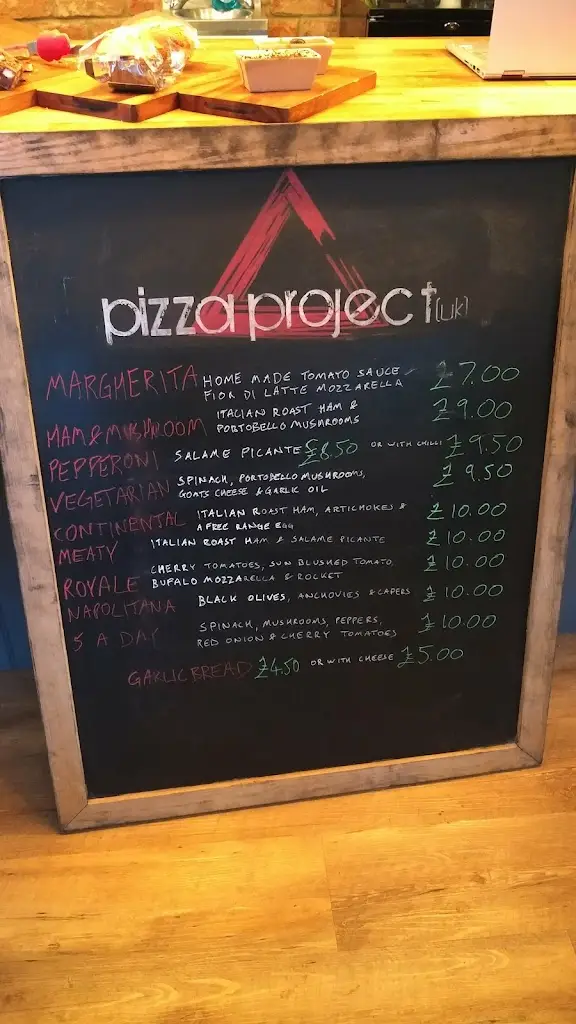 pizza project (uk)
MARGHERITA HOME MADE TOMATO SAUCE £7.00
FIOR DI LATTE MOZZARELLA
HAM & MUSHROOM ITALIAN ROAST HAM & £9.00
PORTOBELLO MUSHROOMS
PEPPERONI SALAME PICANTE £8.50 OR WITH CHILLI £9.50
VEGETARIAN SPINACH, PORTOBELLO MUSHROOMS, £9.50
GOATS CHEESE & GARLIC OIL
CONTINENTAL ITALIAN ROAST HAM, ARTICHOKES & £10.00
A FREE RANGE EGG
MEATY ITALIAN ROAST HAM & SALAME PICANTE £10.00
ROYALE CHERRY TOMATOES, SUN BLUSHED TOMATO, £10.00
BUFALO MOZZARELLA & ROCKET
NAPOLITANA BLACK OLIVES, ANCHOVIES & CAPERS £10.00
5 A DAY SPINACH, MUSHROOMS, PEPPERS, £10.00
RED ONION & CHERRY TOMATOES
GARLIC BREAD £4.50 OR WITH CHEESE £5.00